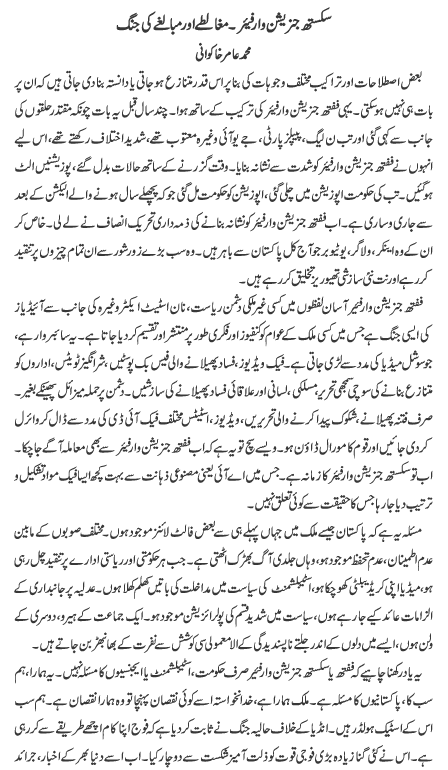 سکستھ جنریشن وار فیئر۔ مغالطے اور مبالغے کی جنگ
محمد عامر خاکوانی
بعض اصطلاحات اور تراکیب مختلف وجوہات کی بنا پر اس قدر متنازع ہو جاتی یا دانستہ بنا دی جاتی ہیں کہ ان پر
بات ہی نہیں ہو سکتی۔ یہی ففتھ جنریشن وار فیئر کی ترکیب کے ساتھ ہوا۔ چند سال قبل یہ بات چونکہ مقتدر حلقوں کی
جانب سے کہی گئی اور تب ن لیگ، پیپلز پارٹی، جے یو آئی وغیرہ معتوب تھے، شدید اختلاف رکھتے تھے، اس لیے
انہوں نے ففتھ جنریشن وار فیئر کو شدت سے نشانہ بنایا۔ وقت گزرنے کے ساتھ حالات بدل گئے، پوزیشنیں الٹ
ہو گئیں۔ تب کی حکومت اپوزیشن میں چلی گئی، اپوزیشن کو حکومت مل گئی جو کہ پچھلے سال ہونے والے الیکشن کے بعد
سے جاری و ساری ہے۔ اب ففتھ جنریشن وار فیئر کو نشانہ بنانے کی ذمہ داری تحریک انصاف نے لے لی۔ خاص کر
ان کے وہ اینکر، ولاگر، یوٹیوبر جو آج کل پاکستان سے باہر ہیں۔ وہ سب بڑے زور شور سے ان تمام چیزوں پر تنقید
کر رہے اور نت نئی سازشی تھیوریز تخلیق کر رہے ہیں۔
ففتھ جنریشن وار فیئر آسان لفظوں میں کسی غیر ملکی دشمن ریاست، نان اسٹیٹ ایکٹر وغیرہ کی جانب سے آئیڈیاز
کی ایسی جنگ ہے جس میں کسی ملک کے عوام کو کنفیوز اور فکری طور پر منتشر اور تقسیم کر دیا جاتا ہے۔ یہ سائبر وار ہے،
جو سوشل میڈیا کی مدد سے لڑی جاتی ہے۔ فیک ویڈیوز، فساد پھیلانے والی فیس بک پوسٹیں، شر انگیز ٹویٹس، اداروں کو
متنازع بنانے کی سوچی سمجھی تحریر، مسلکی، لسانی اور علاقائی فساد پھیلانے کی سازشیں۔ دشمن پر حملہ میزائل پھینکے بغیر۔
صرف فتنہ پھیلانے، شکوک پیدا کرنے والی تحریریں، ویڈیوز، اسٹیٹس مختلف فیک آئی ڈی کی مدد سے ڈال کر وائرل
کر دی جائیں اور قوم کا مورال ڈاؤن ہو۔ ویسے سچ تو یہ ہے کہ اب ففتھ جنریشن وار فیئر سے بھی معاملہ آگے جا چکا۔
اب تو سکستھ جنریشن وار فیئر کا زمانہ ہے۔ جس میں اے آئی یعنی مصنوعی ذہانت سے بہت کچھ ایسا فیک مواد تشکیل و
ترتیب دیا جا رہا جس کا حقیقت سے کوئی تعلق نہیں۔
مسئلہ یہ ہے کہ پاکستان جیسے ملک میں جہاں پہلے ہی سے بعض فالٹ لائنز موجود ہوں۔ مختلف صوبوں کے مابین
عدم اطمینان، عدم تحفظ موجود ہو، وہاں جلدی آگ بھڑک اٹھتی ہے۔ جب ہر حکومتی اور ریاستی ادارے پر تنقید چل رہی
ہو، میڈیا اپنی کریڈیبلٹی کھو چکا ہو، اسٹیبلشمنٹ کی سیاست میں مداخلت کی باتیں کھلم کھلا ہوں۔ عدلیہ پر جانبداری کے
الزامات عائد کیے جا رہے ہوں، سیاست میں شدید قسم کی پولرائزیشن موجود ہو۔ ایک جماعت کے ہیرو، دوسری کے
ولن ہوں، ایسے میں دلوں کے اندر جلتے ناپسندیدگی کے الاؤ معمولی سی کوشش سے نفرت کے بھانبھڑ بن جاتے ہیں۔
یہ یاد رکھنا چاہیے کہ ففتھ یا سکستھ جنریشن وار فیئر صرف حکومت، اسٹیبلشمنٹ یا ایجنسیوں کا مسئلہ نہیں۔ یہ ہمارا، ہم
سب کا، پاکستانیوں کا مسئلہ ہے۔ ملک ہمارا ہے، خدانخواستہ اسے کوئی نقصان پہنچا تو وہ ہمارا نقصان ہے۔ ہم سب
اس کے اسٹیک ہولڈرز ہیں۔ انڈیا کے خلاف حالیہ جنگ نے ثابت کر دیا ہے کہ فوج اپنا کام اچھے طریقے سے کر رہی
ہے۔ اس نے کئی گنا زیادہ بڑی فوجی قوت کو ذلت آمیز شکست سے دوچار کیا۔ اب اسے دنیا بھر کے اخبار، جرائد